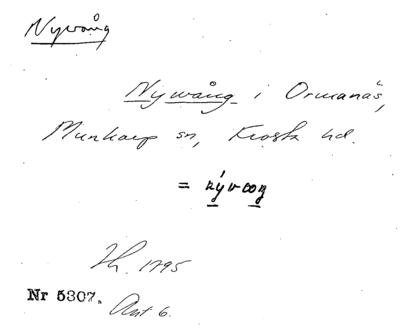 Nyvång
Nywång i Ormanäs,
Munkarp sn, Frosta hd.
= nývoŋ
Th. 1795
Nr 5307. Ant 6.